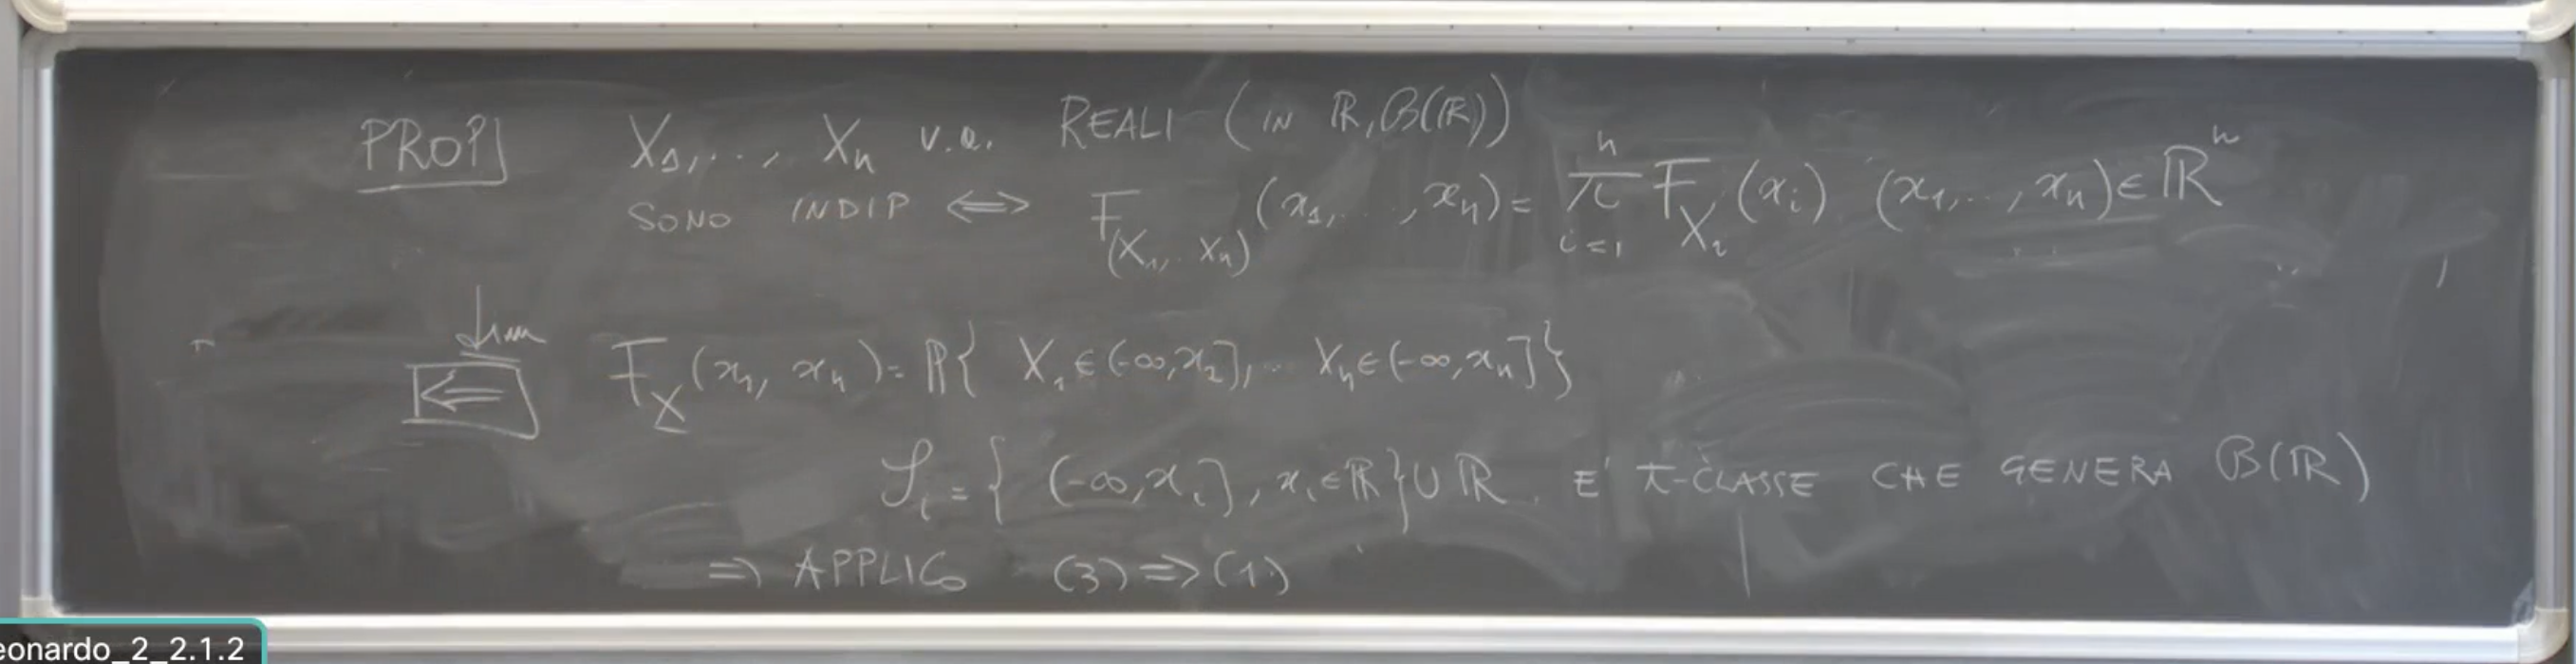 PROP] X₁,.., Xₙ v.a. REALI (IN ℝ, B(ℝ))
SONO INDIP ⟺ F_(X₁,.. Xₙ) (x₁,...,xₙ) = ∏_{i=1}^{n} F_{X_i}(x_i) (x₁,..,xₙ) ∈ ℝⁿ
dim
⇐ F_X (x₁, xₙ) = ℙ{ X₁ ∈ (-∞,x₁], .. Xₙ ∈ (-∞,xₙ] }
𝒮_i = { (-∞,x_i], x_i ∈ ℝ } ∪ ℝ E' π-CLASSE CHE GENERA B(ℝ)
⇒ APPLICO (3) ⇒ (1)
eonardo_2_2.1.2